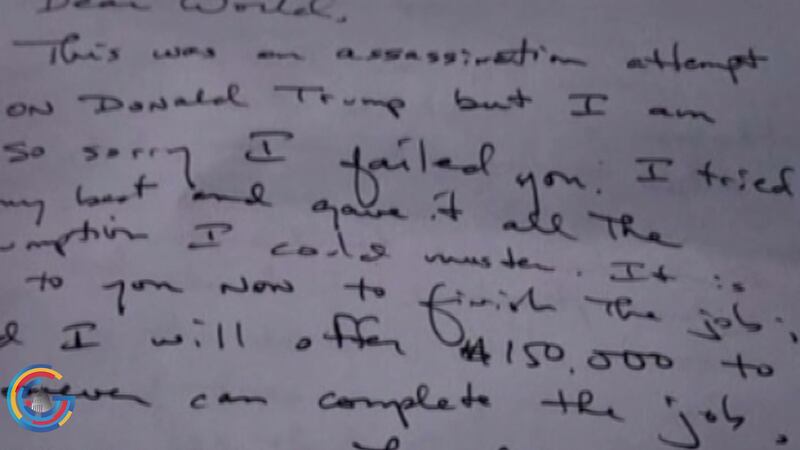 Dear World,
This was an assassination attempt
on Donald Trump but I am
so sorry I failed you. I tried
my best and gave it all the
umption I could muster. It is
to you now to finish the job;
d I will offer $150,000 to
omever can complete the job.